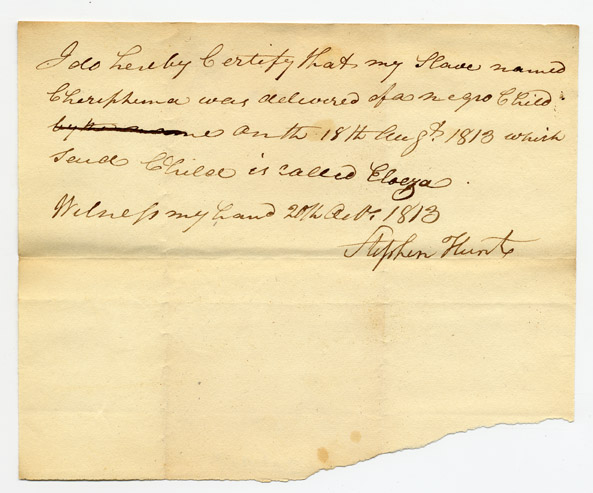 I do hereby Certify that my Slave named
Cheriphema was delivered of a negro Child
by the name on th 18th Augt. 1813 which
Said Childe is called Eloeza.
Witness my hand 20th Octr. 1813
Stephen Hunt